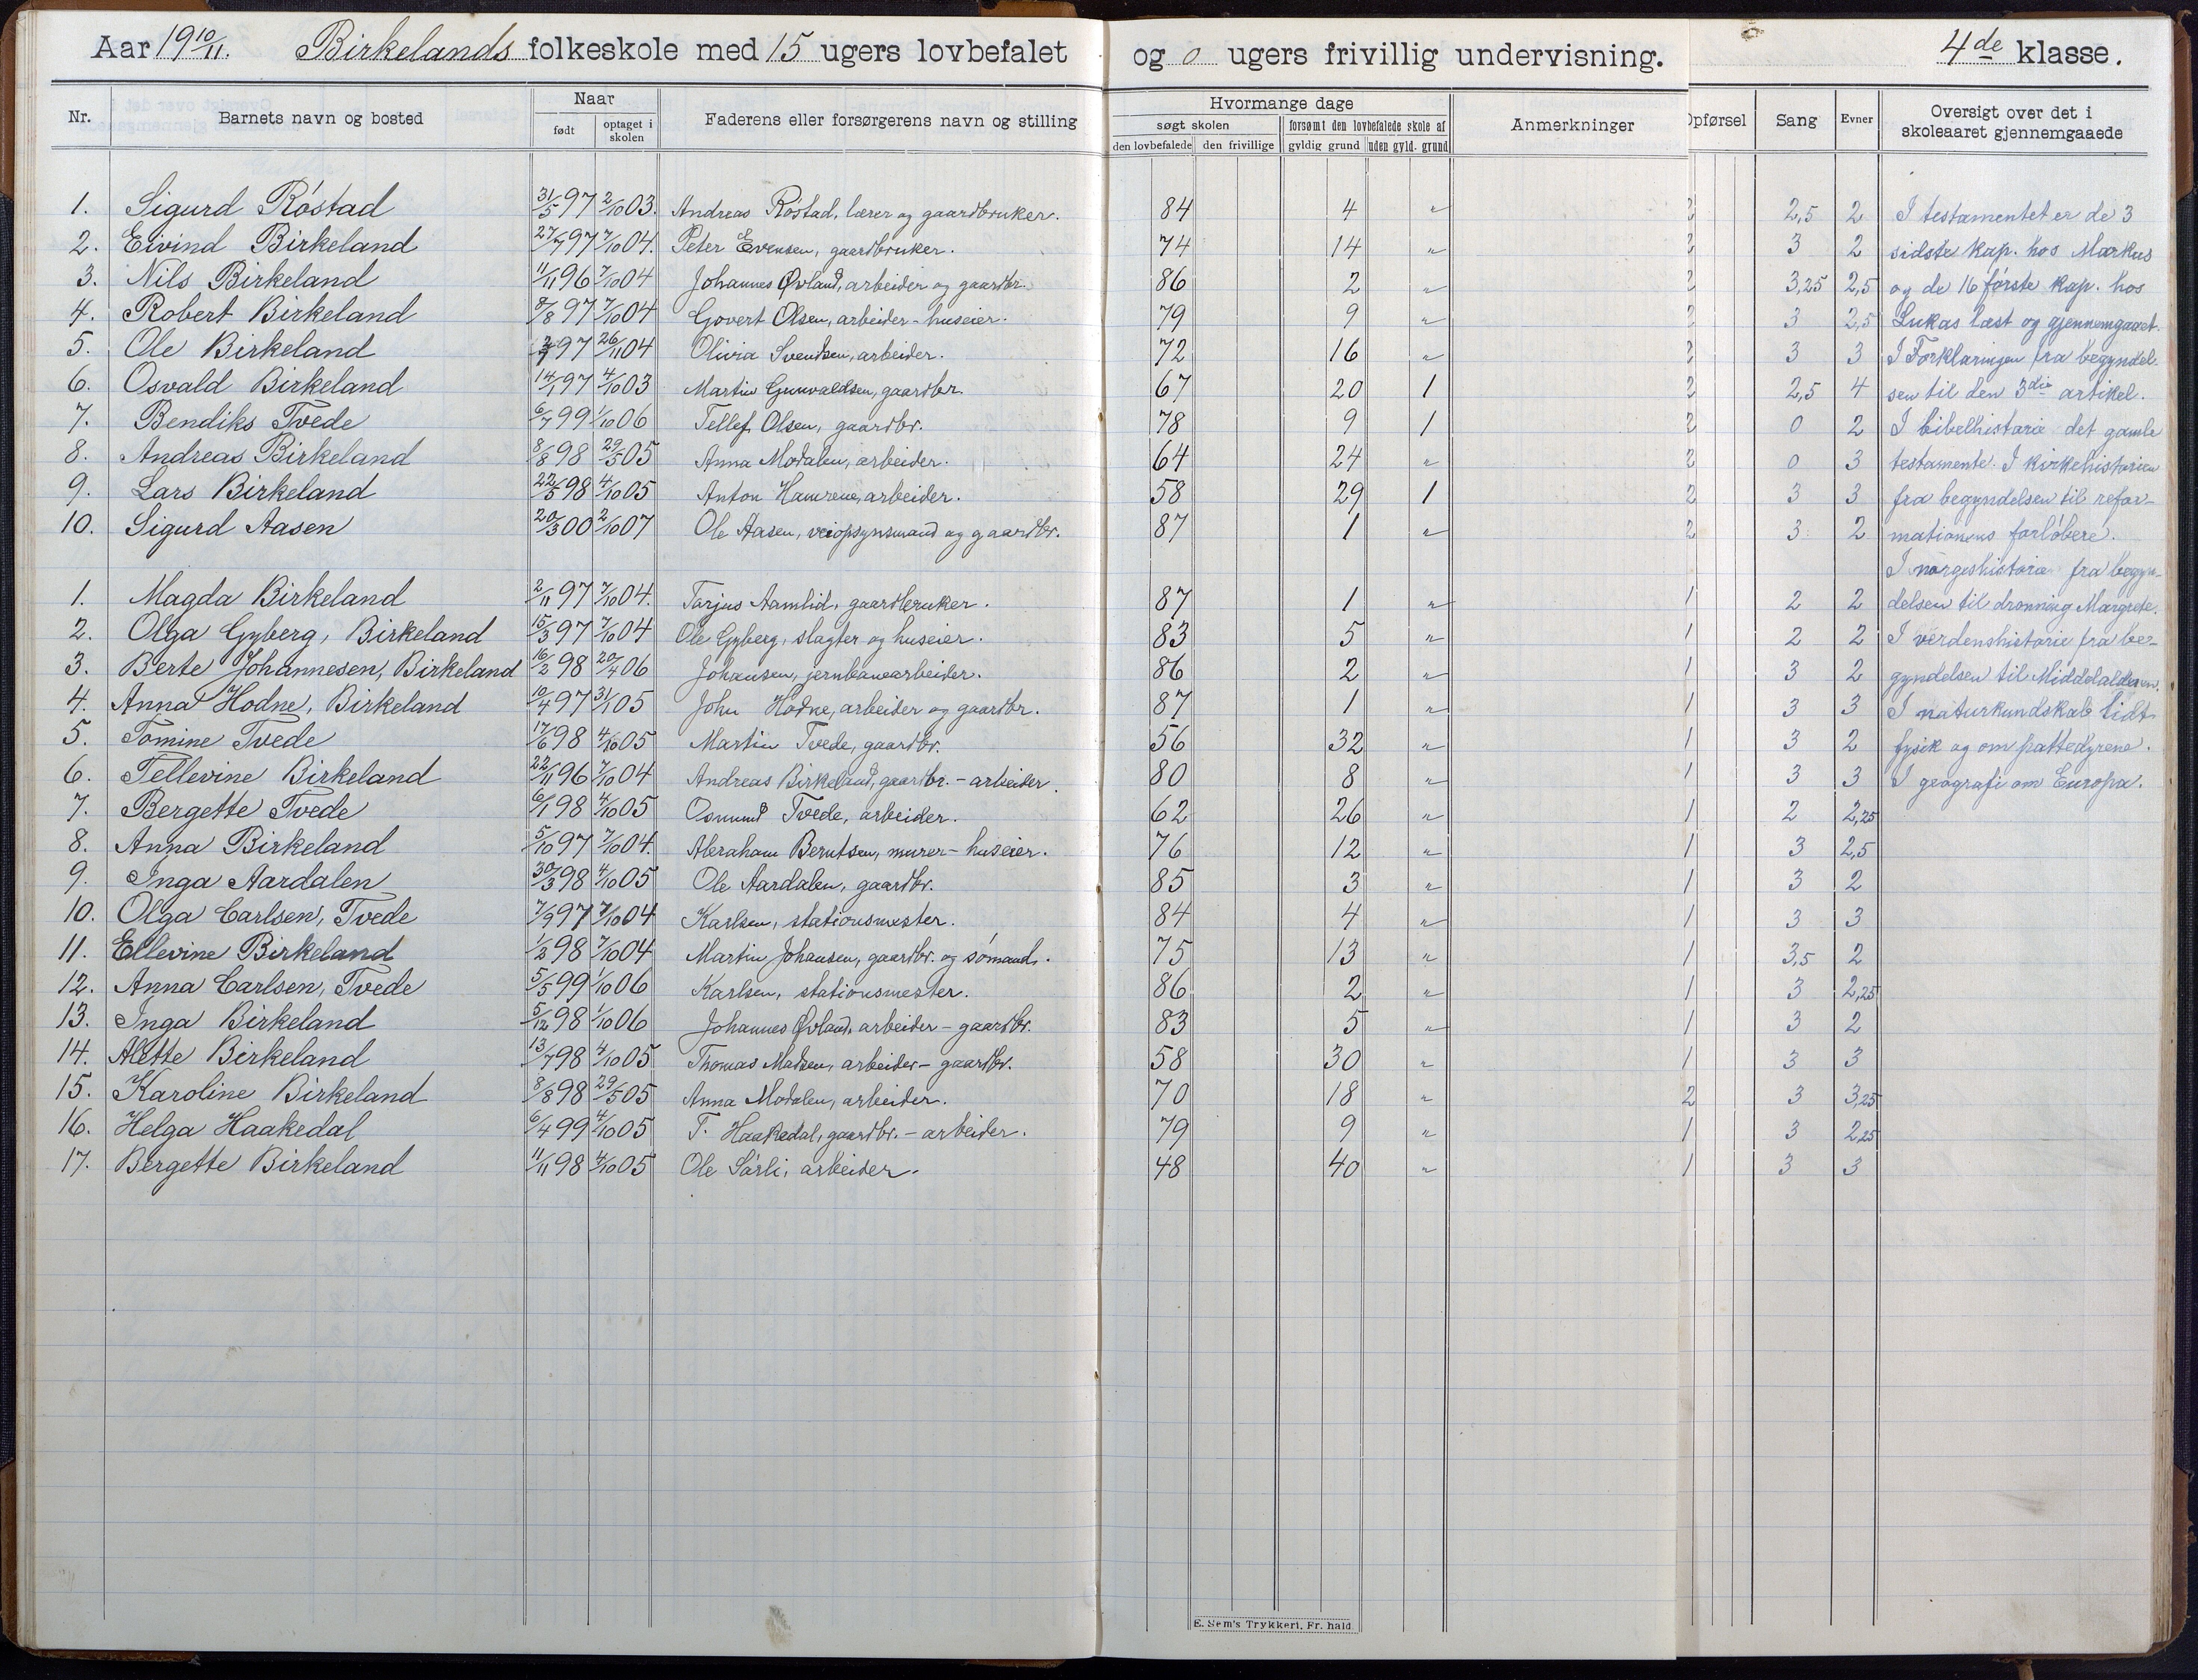 Aar 19 10/11. Birkelands folkeskole med 15 ugers lovbefalet og 0 ugers frivillig undervisning. 4de klasse.
Nr. Barnets navn og bosted Naar født optaget i skolen Faderens eller forsørgerens navn og stilling Hvormange dage søgt skolen den lovbefalede den frivillige forsømt den lovbefalede skole af gyldig grund uden gyld. grund Anmerkninger Opførsel Sang Evner Oversigt over det i skoleaaret gjennemgaaede
1. Sigurd Röstad 31/5 97 2/10 03. Andreas Röstad, lærer og gaardbruker. 84 4 " 2 2,5 2 I testamentet er de 3
2. Eivind Birkeland 27/7 97 7/10 04. Peter Evensen, gaardbruker. 74 14 " 2 3 2 sidste kap. hos Markus
3. Nils Birkeland 11/11 96 7/10 04 Johannes Øvland, arbeider og gaardbr. 86 2 " 2 3,25 2,5 og de 16 förste kap. hos
4. Robert Birkeland 8/8 97 7/10 04 Govert Olsen, arbeider - huseier. 79 9 " 2 3 2,5 Lukas læst og gjennemgaaet.
5. Ole Birkeland 97 26/11 04 Olivia Svendsen, arbeider. 72 16 " 2 3 3 I Forklaringen fra begyndel-
6. Osvald Birkeland 14/1 97 4/10 03 Martin Gunvaldsen, gaardbr. 67 20 1 2 2,5 4 sen til den 3die artikel.
7. Bendiks Tvede 6/7 99 1/10 06 Tellef Olsen, gaardbr. 78 9 1 2 0 2 I bibelhistorie det gamle
8. Andreas Birkeland 8/8 98 29/5 05 Anna Modalen, arbeider. 64 24 " 2 0 3 testamente. I kirkehistorien
9. Lars Birkeland 22/5 98 4/10 05 Anton Hamrene, arbeider. 58 29 1 2 3 3 fra begyndelsen til refor-
10. Sigurd Aasen 20/3 00 2/10 07 Ole Aasen, veiopsynsmand og gaardbr. 87 1 " 2 3 2 mationens forlöbere.
I norgeshistorie fra begyn-
1. Magda Birkeland 2/11 97 7/10 04. Tarjus Aamlid, gaardbruker. 87 1 " 1 2 2 delsen til dronning Margrete.
2. Olga Gyberg, Birkeland 15/3 97 7/10 04 Ole Gyberg, slagter og huseier. 83 5 " 1 2 2 I verdenshistorie fra be-
3. Berte Johannesen, Birkeland 16/2 98 20/4 06 Johansen, jernbanearbeider. 86 2 " 1 3 2 gyndelsen til Middelalderen.
4. Anna Hodne, Birkeland 10/4 97 31/1 05 John Hodne, arbeider og gaardbr. 87 1 " 1 3 3 I naturkundskab lidt
5. Tomine Tvede 17/6 98 4/10 05 Martin Tvede, gaardbr. 56 32 " 1 3 2 fysik og om pattedyrene.
6. Tellevine Birkeland 22/11 96 7/10 04 Andreas Birkeland, gaardbr. - arbeider. 80 8 " 1 3 3 I geografi om Europa.
7. Bergette Tvede 6/1 98 4/10 05 Osmund Tvede, arbeider. 62 26 " 1 2 2,25
8. Anna Birkeland 5/10 97 7/10 04. Abraham Berntsen, murer - huseier. 76 12 " 1 3 2,5
9. Inga Aardalen 30/3 98 4/10 05 Ole Aardalen, gaardbr. 85 3 " 1 3 2
10. Olga Carlsen, Tvede 7/9 97 7/10 04 Karlsen, stationsmester. 84 4 " 1 3 3
11. Ellevine Birkeland 1/2 98 7/10 04 Martin Johansen, gaardbr. og sömand. 75 13 " 1 3,5 2
12. Anna Carlsen, Tvede 5/5 99 1/10 06 Karlsen, stationsmester. 86 2 " 1 3 2,25
13. Inga Birkeland 5/12 98 1/10 06 Johannes Øvland, arbeider - gaardbr. 83 5 " 1 3 2
14. Alette Birkeland 13/7 98 4/10 05 Thomas Madsen, arbeider - gaardbr. 58 30 " 1 3 3
15. Karoline Birkeland 8/8 98 29/5 05 Anna Modalen, arbeider. 70 18 " 2 3 3,25
16. Helga Haakedal 6/4 99 4/10 05 T. Haakedal, gaardbr. - arbeider. 79 9 " 1 3 2,25
17. Bergette Birkeland 11/11 98 4/10 05 Ole Sörli, arbeider. 48 40 " 1 3 3
E. Sem's Trykkeri, Fr. hald